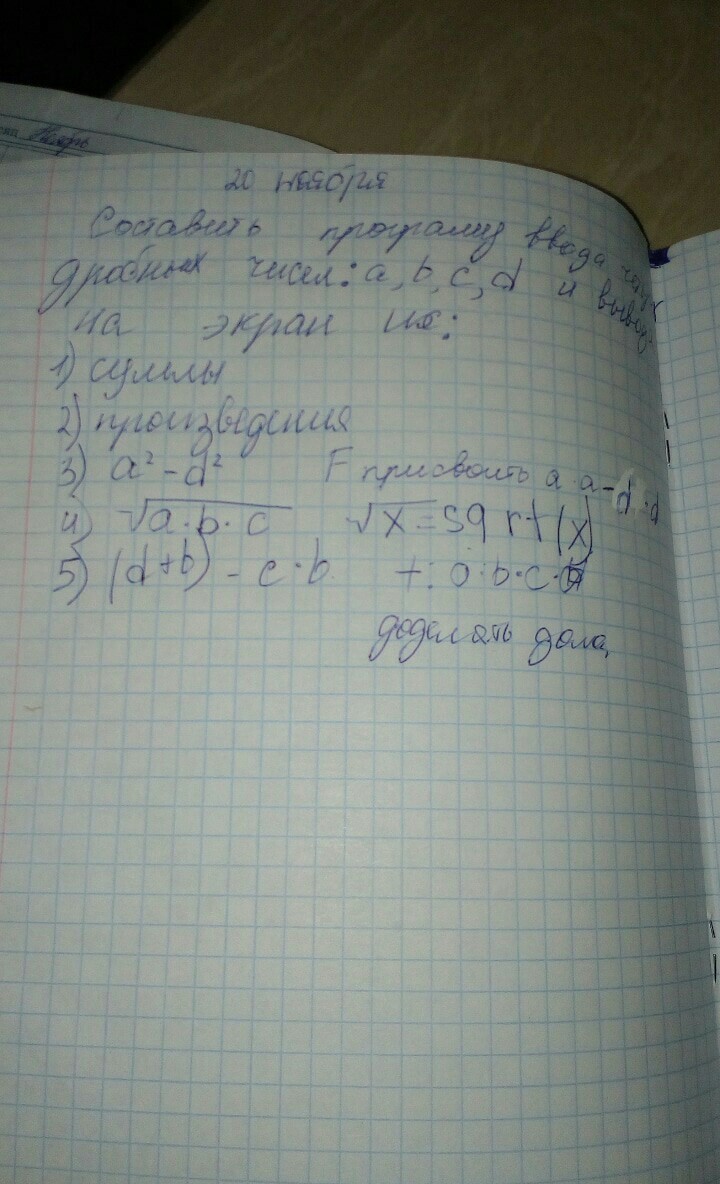 Ноябрь
20 ноября
Составить програму ввода
дробных чисел: a, b, c, d и вывод
на экран их:
1) суммы
2) произведения
3) a² - d² F присвоить a·a-d·d
4) √a·b·c √x = sqrt(x)
5) (d+b) - c·b
доделать дома,